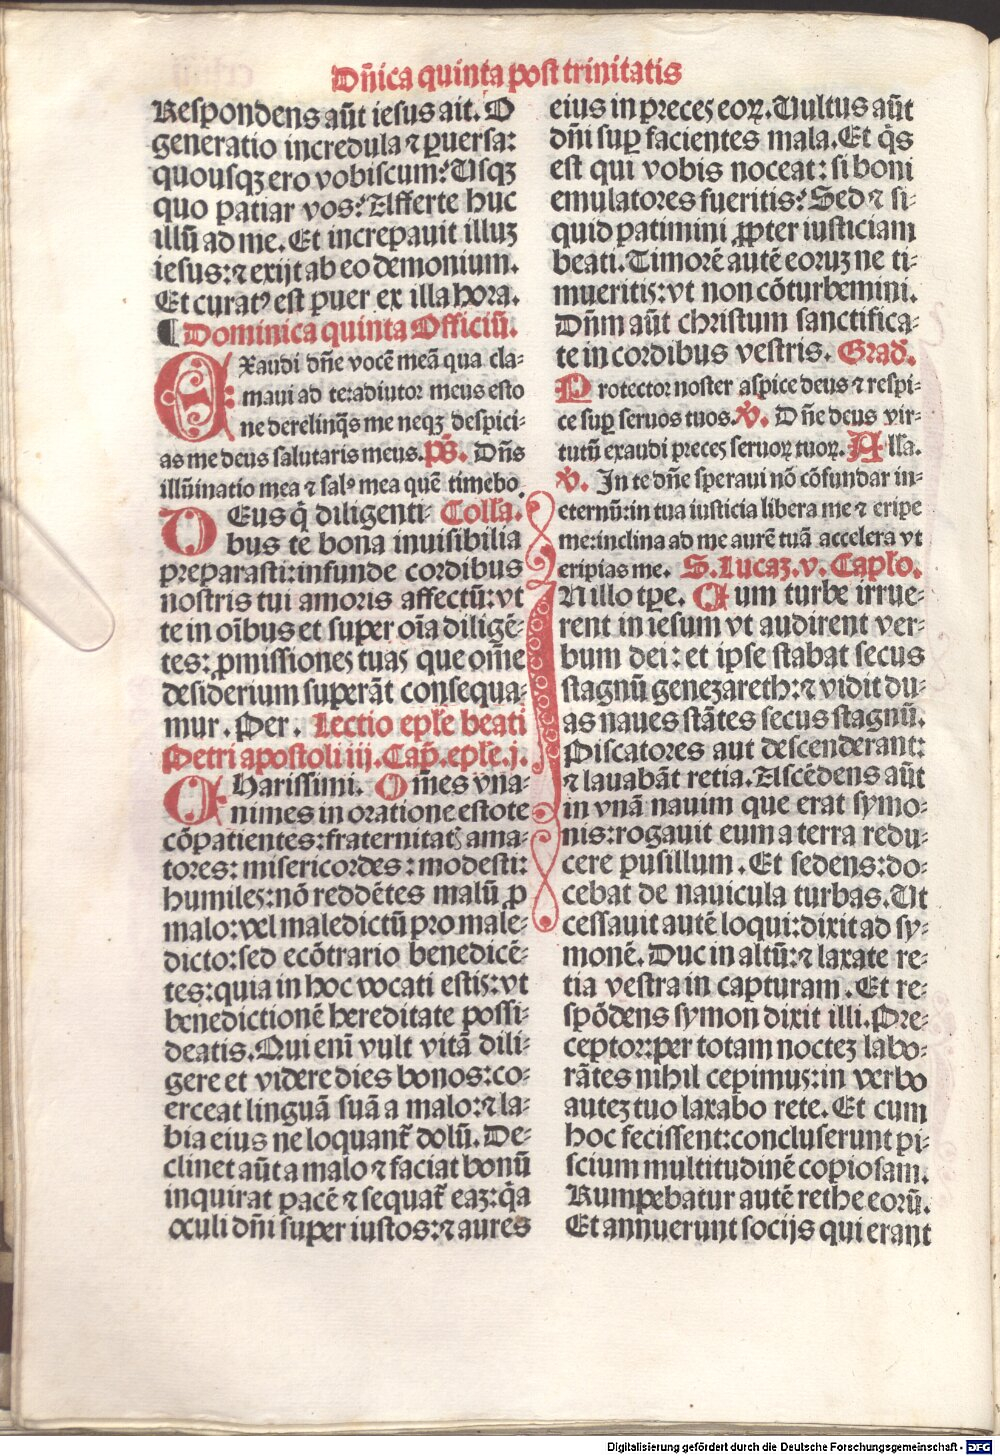 Dn̄ica quinta post trinitatis
Respondens aūt iesus ait. O
generatio incredula ⁊ ꝑuersa:
quousqꝫ ero vobiscum? Usqꝫ
quo patiar vos? Afferte huc
illū ad me. Et increpauit illuꝫ
iesus: ⁊ exijt ab eo demonium.
Et curatꝰ est puer ex illa hora.
¶ Dominica quinta Officiū.
EXaudi dn̄e vocē meā qua cla⸗
maui ad te: adiutor meus esto
ne derelinq̄s me neqꝫ despici⸗
as me deus salutaris meus. pS̄. Dn̄s
illūinatio mea ⁊ salꝰ mea quē timebo.
DEUS q̄ diligenti⸗ Coll̄a.
bus te bona inuisibilia
preparasti: infunde cordibus
nostris tui amoris affectū: vt
te in oībus et super oīa diligē⸗
tes: ꝓmissiones tuas que om̄e
desiderium superāt consequa⸗
mur. Per. Lectio epl̄e beati
Petri apostoli iij. Cap̄. epl̄e. j.
CHarissimi. Om̄es vna⸗
nimes in oratione estote
cōpatientes: fraternitatꝭ ama⸗
tores: misericordes: modesti:
humiles: nō reddētes malū ꝓ
malo: vel maledictū pro male⸗
dicto: sed ecōtrario benedicē⸗
tes: quia in hoc vocati estis: vt
benedictionē hereditate possi⸗
deatis. Qui enī vult vitā dili⸗
gere et videre dies bonos: co⸗
erceat linguā suā a malo: ⁊ la⸗
bia eius ne loquant̄ dolū. De⸗
clinet aūt a malo ⁊ faciat bonū
inquirat pacē ⁊ sequat̄ eaꝫ: q̄a
oculi dn̄i super iustos: ⁊ aures
eius in preces eoꝝ. Uultus aūt
dn̄i suꝑ facientes mala. Et q̄s
est qui vobis noceat: si boni
emulatores fueritis? Sed ⁊ si⸗
quid patimini ꝓpter iusticiam
beati. Timorē autē eoruꝫ ne ti⸗
mueritis: vt non cōturbemini.
Dn̄m aūt christum sanctifica⸗
te in cordibus vestris. Grad̄.
Protector noster aspice deus ⁊ respi⸗
ce suꝑ seruos tuos. ℣. Dn̄e deus vir⸗
tutū exaudi preces seruoꝝ tuoꝝ. All̄a.
℣. In te dn̄e speraui nō cōfundar in⸗
eternū: in tua iusticia libera me ⁊ eripe
me: inclina ad me aurē tuā accelera vt
eripias me. S. Lucaꝫ. v. Capl̄o.
IN illo tꝑe. Cum turbe irrue⸗
rent in iesum vt audirent ver⸗
bum dei: et ipse stabat secus
stagnū genezareth: ⁊ vidit du⸗
as naues stātes secus stagnū.
Piscatores aut descenderant:
⁊ lauabāt retia. Ascēdens aūt
in vnā nauim que erat symo⸗
nis: rogauit eum a terra redu⸗
cere pusillum. Et sedens: do⸗
cebat de nauicula turbas. Ut
cessauit autē loqui: dixit ad sy⸗
monē. Duc in altū: ⁊ laxate re⸗
tia vestra in capturam. Et re⸗
spōdens symon dixit illi. Pre⸗
ceptor: per totam nocteꝫ labo⸗
rātes nihil cepimus: in verbo
auteꝫ tuo laxabo rete. Et cum
hoc fecissent: concluserunt pi⸗
scium multitudinē copiosam.
Rumpebatur autē rethe eorū.
Et annuerunt socijs qui erant
Digitalisierung gefördert durch die Deutsche Forschungsgemeinschaft - DFG